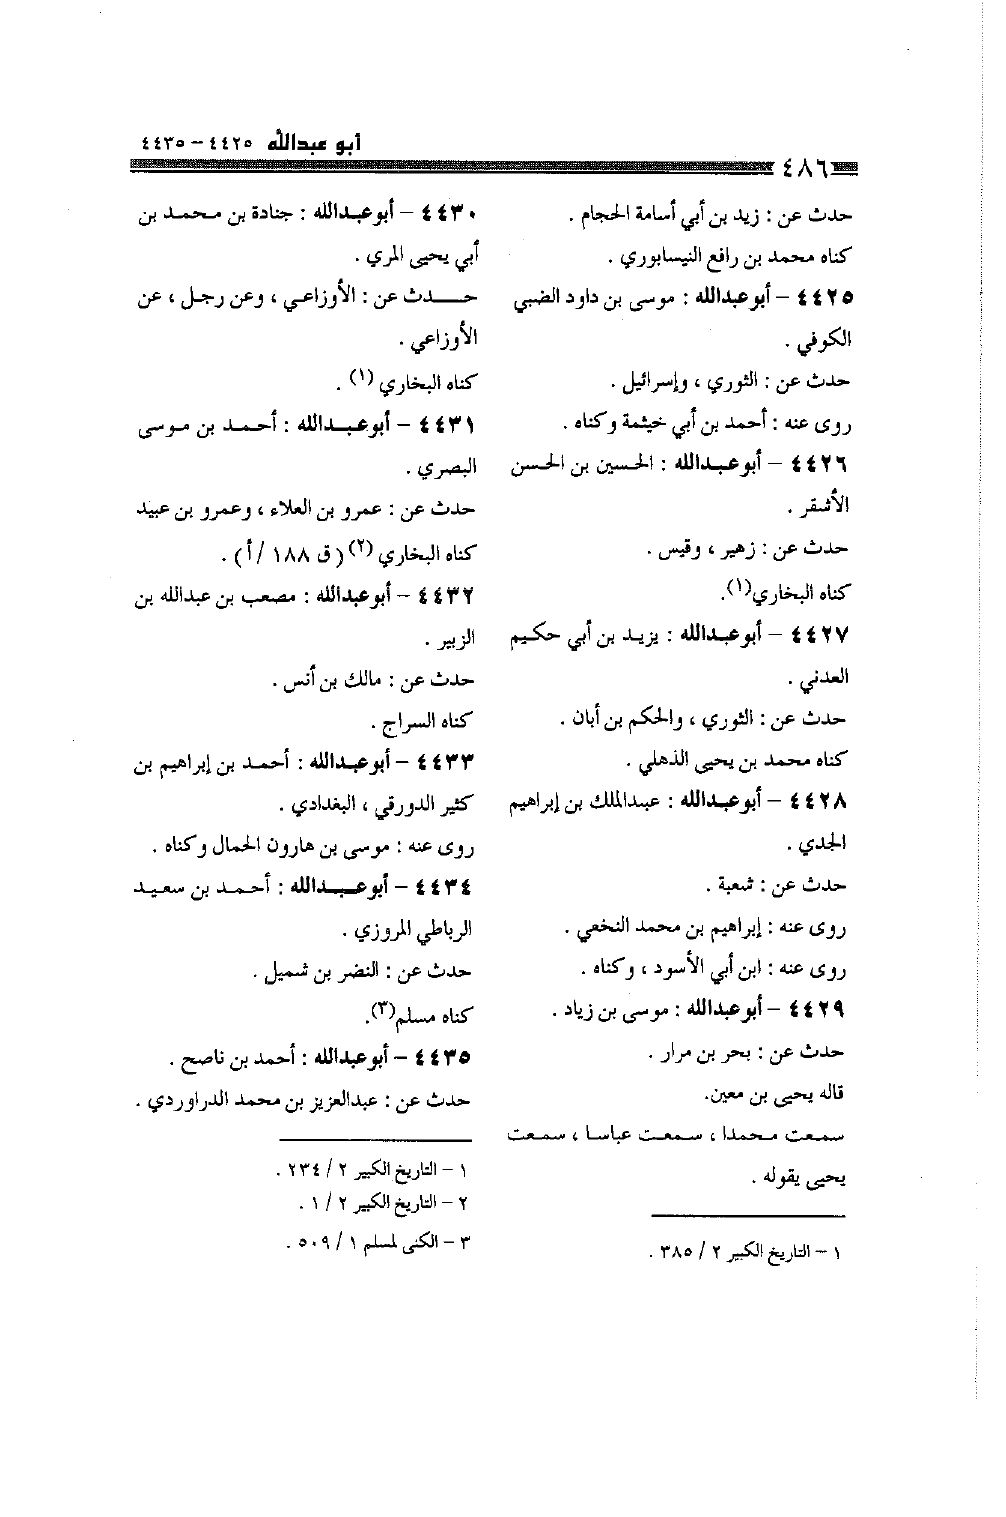 أبو عبدالله ٤٤٢٥ – ٤٤٣٥
٤٨٦
حدث عن : زيد بن أبي أسامة الحجام .
كناه محمد بن رافع النيسابوري .
٤٤٢٥ – أبو عبدالله : موسى بن داود الضبي
الكوفي .
حدث عن : الثوري ، وإسرائيل .
روى عنه : أحمد بن أبي خيثمة وكناه .
٤٤٢٦ – أبو عبدالله : الحسين بن الحسن
الأشقر .
حدث عن : زهير ، وقيس .
كناه البخاري(١).
٤٤٢٧ – أبو عبدالله : يزيد بن أبي حكيم
العدني .
حدث عن : الثوري ، والحكم بن أبان .
كناه محمد بن يحيى الذهلي .
٤٤٢٨ – أبو عبدالله : عبدالملك بن إبراهيم
الجدي .
حدث عن : شعبة .
روى عنه : إبراهيم بن محمد النخعي .
روى عنه : ابن أبي الأسود ، وكناه .
٤٤٢٩ – أبو عبدالله : موسى بن زياد .
حدث عن : بحر بن مرار .
قاله يحيى بن معين.
سمعت محمدا ، سمعت عباسا ، سمعت
يحيى يقوله .
١ – التاريخ الكبير ٢ / ٣٨٥ .
٤٤٣٠ – أبو عبدالله : جنادة بن محمد بن
أبي يحيى المري .
حدث عن : الأوزاعي ، وعن رجل ، عن
الأوزاعي .
كناه البخاري (١) .
٤٤٣١ – أبو عبدالله : أحمد بن موسى
البصري .
حدث عن : عمرو بن العلاء ، وعمرو بن عبيد
كناه البخاري (٢) ( ق ١٨٨ /أ ) .
٤٤٣٢ – أبو عبدالله : مصعب بن عبدالله بن
الزبير .
حدث عن : مالك بن أنس .
كناه السراج .
٤٤٣٣ – أبو عبدالله : أحمد بن إبراهيم بن
كثير الدورقي ، البغدادي .
روى عنه : موسى بن هارون الحمال وكناه .
٤٤٣٤ – أبو عبدالله : أحمد بن سعيد
الرباطي المروزي .
حدث عن : النضر بن شميل .
كناه مسلم(٣).
٤٤٣٥ – أبو عبدالله : أحمد بن ناصح .
حدث عن : عبدالعزيز بن محمد الدراوردي .
١ – التاريخ الكبير ٢ / ٢٣٤ .
٢ – التاريخ الكبير ٢ / ١ .
٣ – الكنى لمسلم ١ / ٥٠٩ .